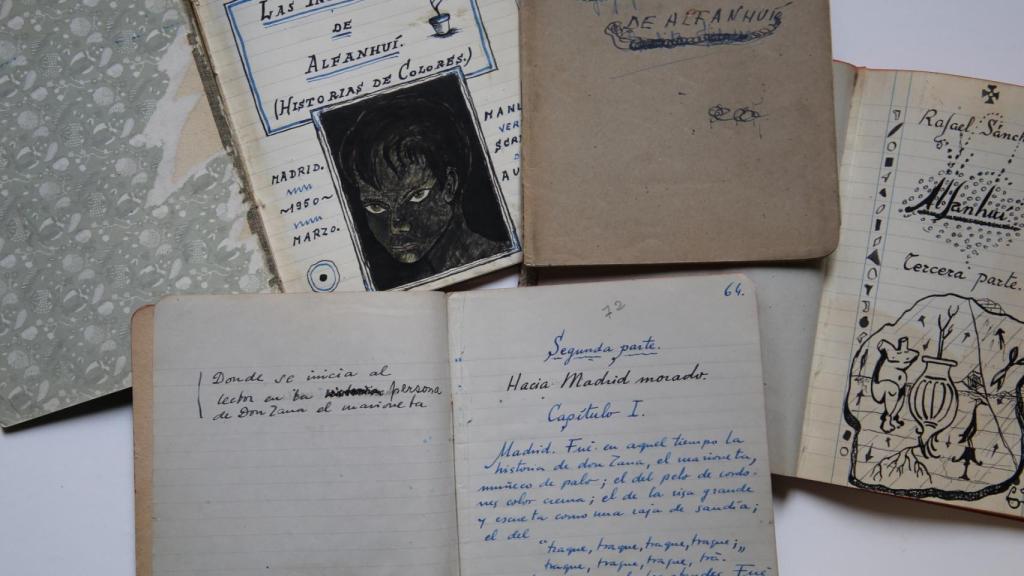 LAS
DE
ALFANHUÍ.
(HISTORIAS DE COLORES.)
MADRID.
~1950~
MARZO.
DE ALFANHUÍ
Rafael Sánch
Alfanhuí.
Tercera parte.
64.
72
Donde se inicia al
lector en la persona
de Don Zana el marioneta
Segunda parte.
Hacia Madrid morado.
Capítulo I.
Madrid. Fué en aquel tiempo la
historia de don Zana, el marioneta,
muñeco de palo; el del pelo de cordo-
nes color crema; el de la risa grande
y escueta como una raja de sandía;
el del
"traque, traque, traque, traque;„
traque, traque, traque, tra.
Fué